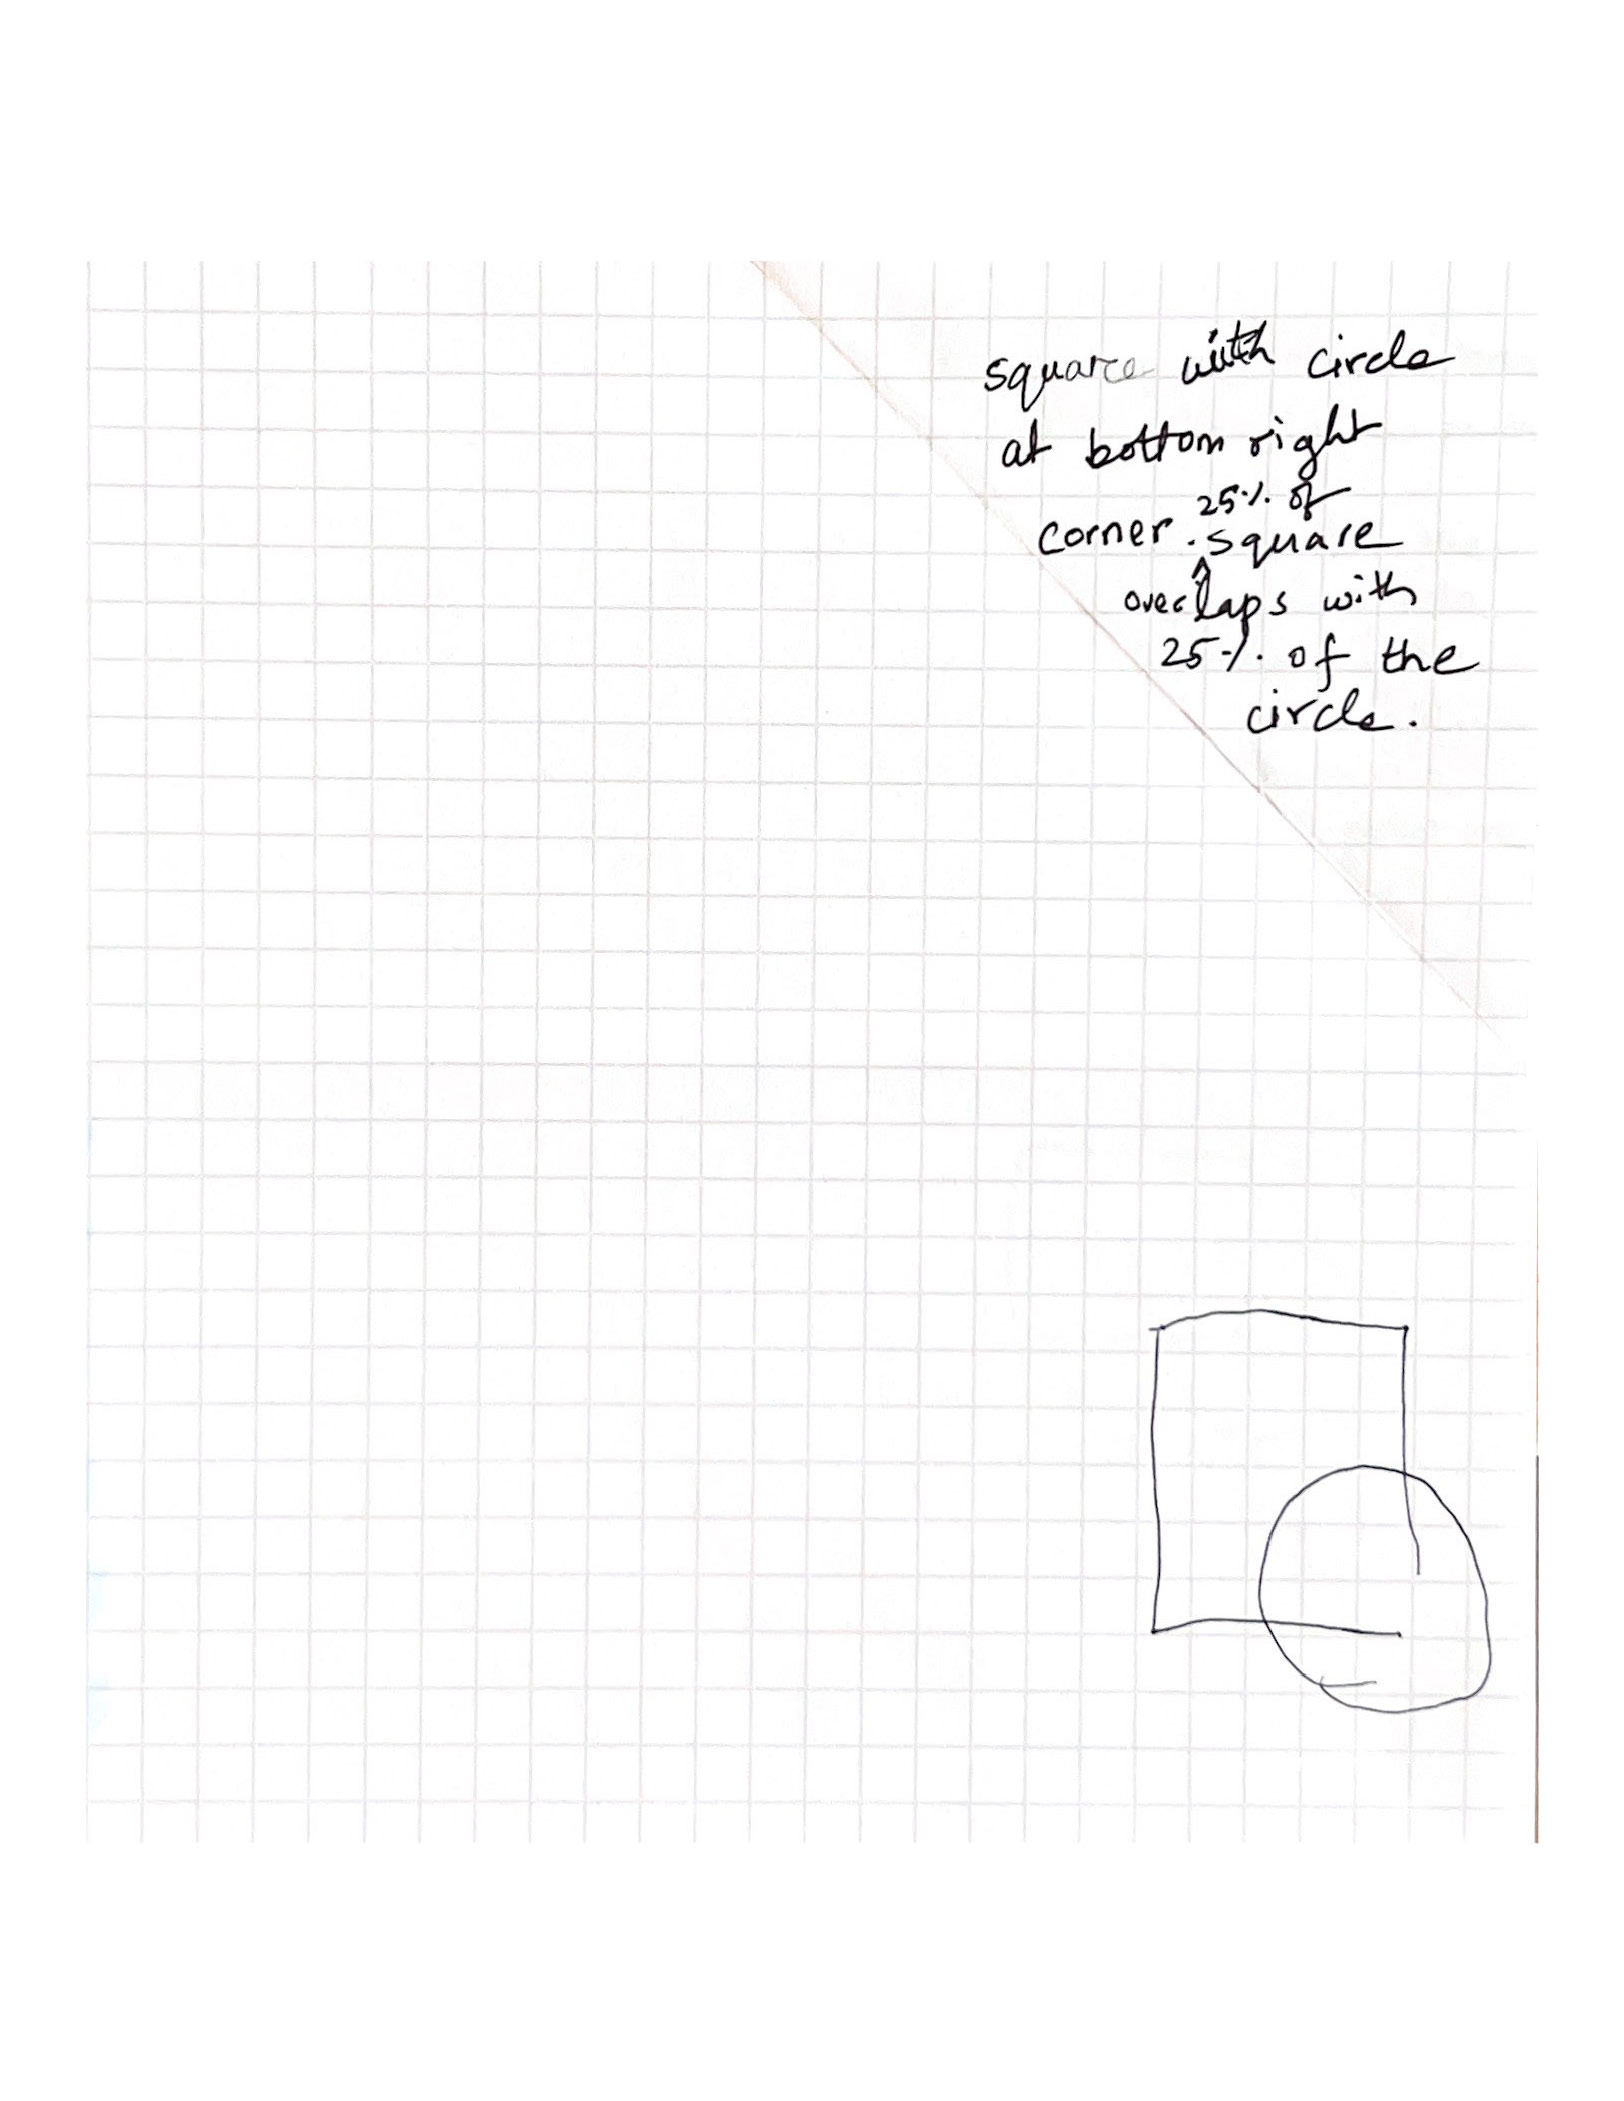 square with circle
at bottom right
25% of
corner. square
overlaps with
25% of the
circle.